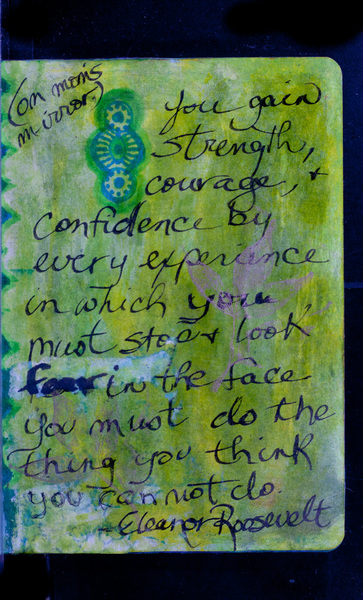 (on mom's
mirror.)
You gain
strength,
courage, +
confidence by
every experience
in which you
must stop + look
fear in the face
you must do the
thing you think
you cannot do.
- Eleanor Roosevelt